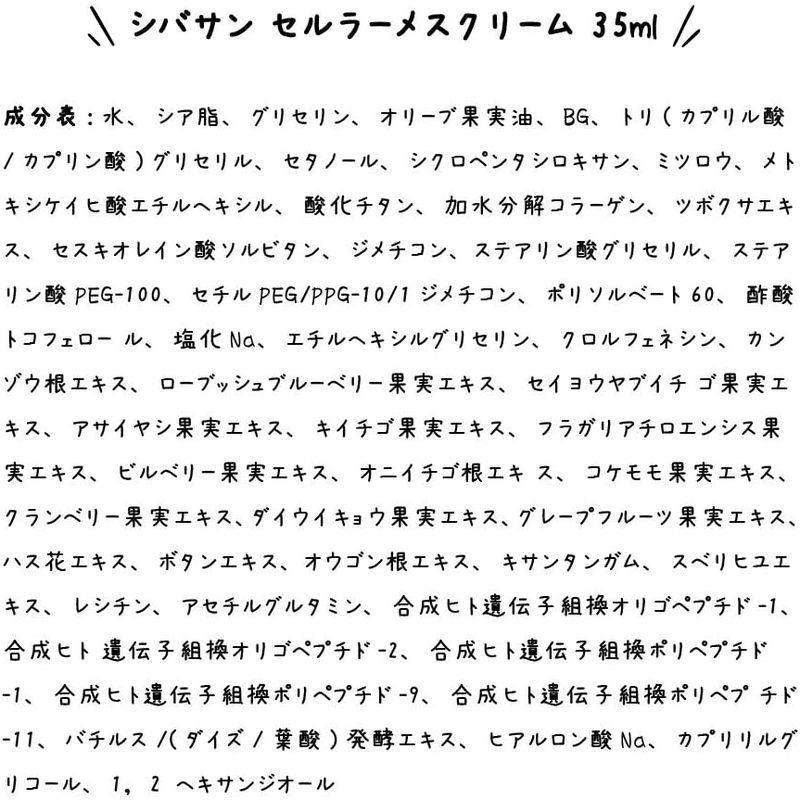 シバサン セルラーメスクリーム 35ml
成分表：水、 シア脂、 グリセリン、 オリーブ果実油、 BG、 トリ ( カプリル酸
/ カプリン酸 ) グリセリル、 セタノール、 シクロペンタシロキサン、ミツロウ、 メト
キシケイヒ酸エチルヘキシル、 酸化チタン、 加水分解コラーゲン、 ツボクサエキ
ス、 セスキオレイン酸ソルビタン、 ジメチコン、ステアリン酸グリセリル、 ステア
リン酸 PEG-100、 セチル PEG/PPG-10/1 ジメチコン、 ポリソルベート 60、 酢酸
トコフェロー ル、 塩化 Na、 エチルヘキシルグリセリン、 クロルフェネシン、 カン
ゾウ根エキス、 ローブッシュブルーベリー果実エキス、 セイヨウヤブイチ ゴ果実エ
キス、 アサイヤシ果実エキス、 キイチゴ果実エキス、 フラガリアチロエンシス果
実エキス、 ビルベリー果実エキス、 オニイチゴ根エキ ス、 コケモモ果実エキス、
クランベリー果実エキス、ダイウイキョウ果実エキス、グレープフルーツ果実エキス、
ハス花エキス、 ボタンエキス、オウゴン根エキス、 キサンタンガム、 スベリヒユエ
キス、 レシチン、 アセチルグルタミン、 合成ヒト遺伝子組換オリゴペプチド -1、
合成ヒト 遺伝子組換オリゴペプチド -2、 合成ヒト遺伝子組換ポリペプチド
-1、 合成ヒト遺伝子組換ポリペプチド -9、 合成ヒト遺伝子組換ポリペプ チド
-11、 バチルス /( ダイズ / 葉酸 ) 発酵エキス、 ヒアルロン酸 Na、 カプリリルグ
リコール、 1， 2 ヘキサンジオール